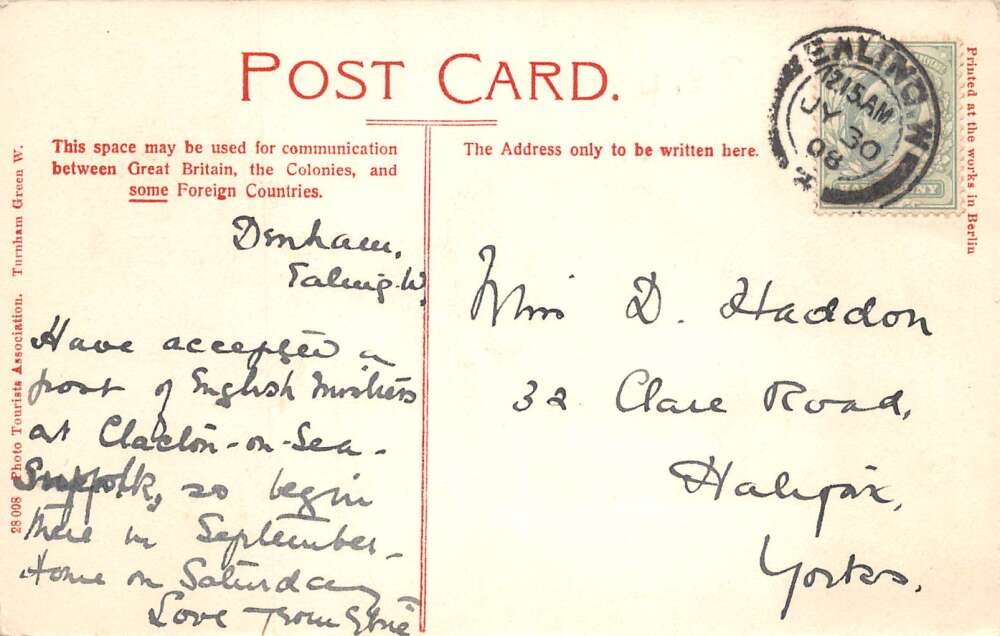 POST CARD.
This space may be used for communication
between Great Britain, the Colonies, and
some Foreign Countries.
The Address only to be written here.
EALING.W
12.15.AM
JY 30
08
Printed at the works in Berlin
28008 Photo Tourists Association. Turnham Green W.
Denham,
Ealing. W.
Have accepted a
post of English Mistress
at Clacton-on-Sea-
Suffolk, so begin
there in September-
Home on Saturday
Love from
Miss D. Haddon
32 Clare Road,
Halifax,
Yorks.